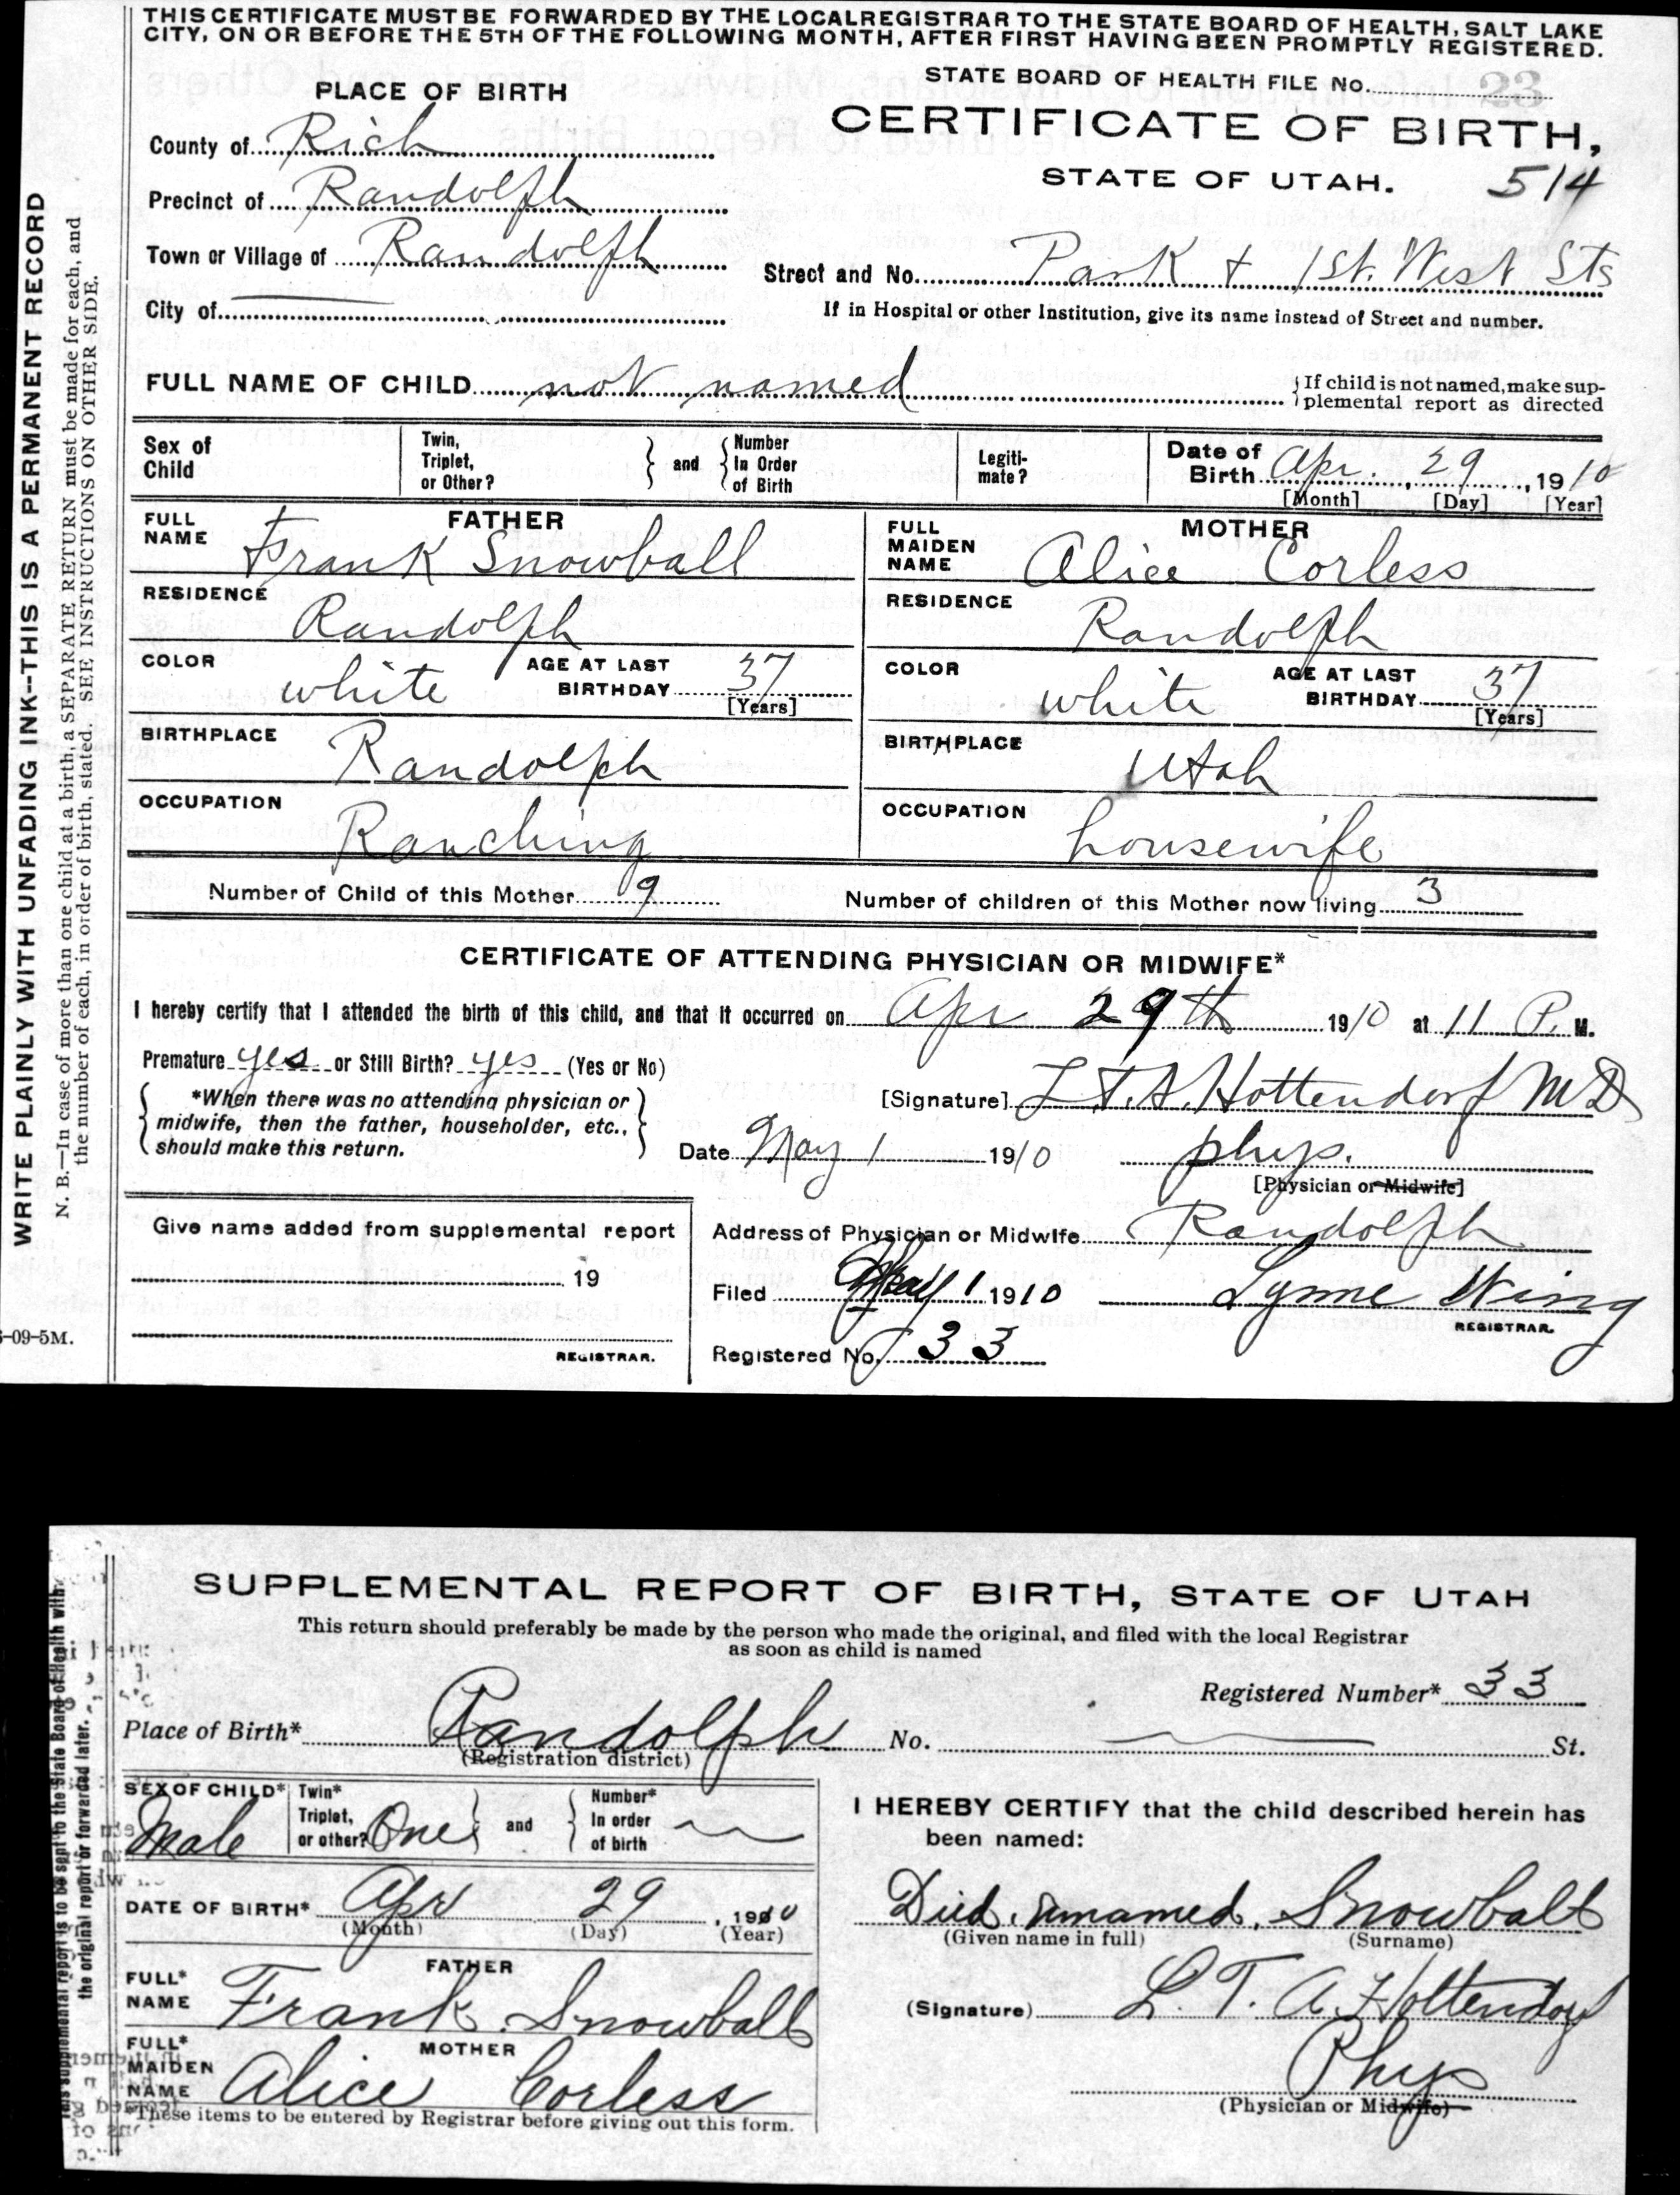 THIS CERTIFICATE MUST BE FORWARDED BY THE LOCAL REGISTRAR TO THE STATE BOARD OF HEALTH, SALT LAKE
CITY, ON OR BEFORE THE 5TH OF THE FOLLOWING MONTH, AFTER FIRST HAVING BEEN PROMPTLY REGISTERED.
STATE BOARD OF HEALTH FILE No. 23
PLACE OF BIRTH
CERTIFICATE OF BIRTH,
County of Rich
STATE OF UTAH. 514
Precinct of Randolph
Town or Village of Randolph
Street and No. Park + 1st. West Sts
City of
If in Hospital or other Institution, give its name instead of Street and number.
FULL NAME OF CHILD not named
If child is not named, make sup-
plemental report as directed
Sex of
Child
Twin,
Triplet,
or Other?
and
Number
In Order
of Birth
Legiti-
mate?
Date of
Birth Apr. 29, 1910
[Month] [Day] [Year]
FATHER
FULL
NAME Frank Snowball
MOTHER
FULL
MAIDEN
NAME Alice Corless
RESIDENCE Randolph
RESIDENCE Randolph
COLOR white
AGE AT LAST
BIRTHDAY 37
[Years]
COLOR white
AGE AT LAST
BIRTHDAY 37
[Years]
BIRTHPLACE Randolph
BIRTHPLACE Utah
OCCUPATION Ranching
OCCUPATION housewife
Number of Child of this Mother 9
Number of children of this Mother now living 3
CERTIFICATE OF ATTENDING PHYSICIAN OR MIDWIFE*
I hereby certify that I attended the birth of this child, and that it occurred on Apr 29th 1910 at 11 P. M.
Premature yes or Still Birth? yes (Yes or No)
*When there was no attending physician or
midwife, then the father, householder, etc.,
should make this return.
[Signature] L.T.A. Hottendorf MD
Date May 1 1910 phys.
[Physician or Midwife]
Give name added from supplemental report
19
REGISTRAR.
Address of Physician or Midwife Randolph
Filed May 1 1910 Lynne Wing
REGISTRAR.
Registered No. 33
WRITE PLAINLY WITH UNFADING INK--THIS IS A PERMANENT RECORD
N. B.—In case of more than one child at a birth, a SEPARATE RETURN must be made for each, and
the number of each, in order of birth, stated. SEE INSTRUCTIONS ON OTHER SIDE.
-09-5M.
SUPPLEMENTAL REPORT OF BIRTH, STATE OF UTAH
This return should preferably be made by the person who made the original, and filed with the local Registrar
as soon as child is named
Registered Number* 33
Place of Birth* Randolph No. St.
(Registration district)
SEX OF CHILD*
Male
Twin*
Triplet,
or other? One
and
Number*
In order
of birth
DATE OF BIRTH* Apr 29, 1910
(Month) (Day) (Year)
FATHER
FULL*
NAME Frank Snowball
MOTHER
FULL*
MAIDEN
NAME Alice Corless
*These items to be entered by Registrar before giving out this form.
I HEREBY CERTIFY that the child described herein has
been named:
Died. unnamed. Snowball
(Given name in full) (Surname)
(Signature) L. T. A. Hottendorf
Phys
(Physician or Midwife)
This supplemental report is to be sent to the State Board of Health with
the original report or forwarded later.